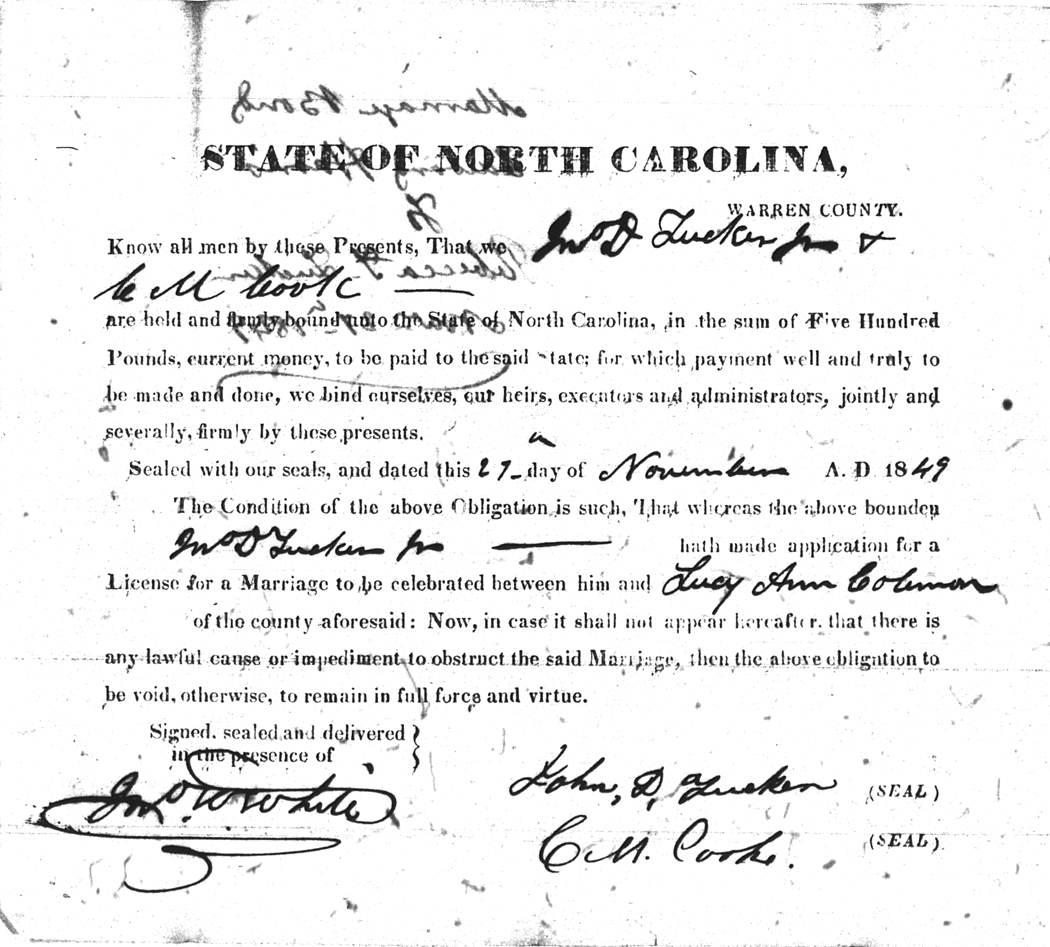 Marriage Bond
STATE OF NORTH CAROLINA,
To
WARREN COUNTY.
Know all men by these Presents, That we Jno D Tucker Jr &
Rebecca F. Tucker
C M Cook
are held and firmly bound unto the State of North Carolina, in the sum of Five Hundred
Pounds, current money, to be paid to the said State; for which payment well and truly to
be made and done, we bind ourselves, our heirs, executors and administrators, jointly and
severally, firmly by these presents.
Sealed with our seals, and dated this 27 day of November A. D 1849
The Condition of the above Obligation is such, That whereas the above bounden
Jno D Tucker Jr hath made application for a
License for a Marriage to be celebrated between him and Lucy Ann Coleman
of the county aforesaid: Now, in case it shall not appear hereafter, that there is
any lawful cause or impediment to obstruct the said Marriage, then the above obligation to
be void, otherwise, to remain in full force and virtue.
Signed, sealed and delivered }
in the presence of
Jno W White
John, D, Tucker (SEAL)
C. M. Cooke. (SEAL)